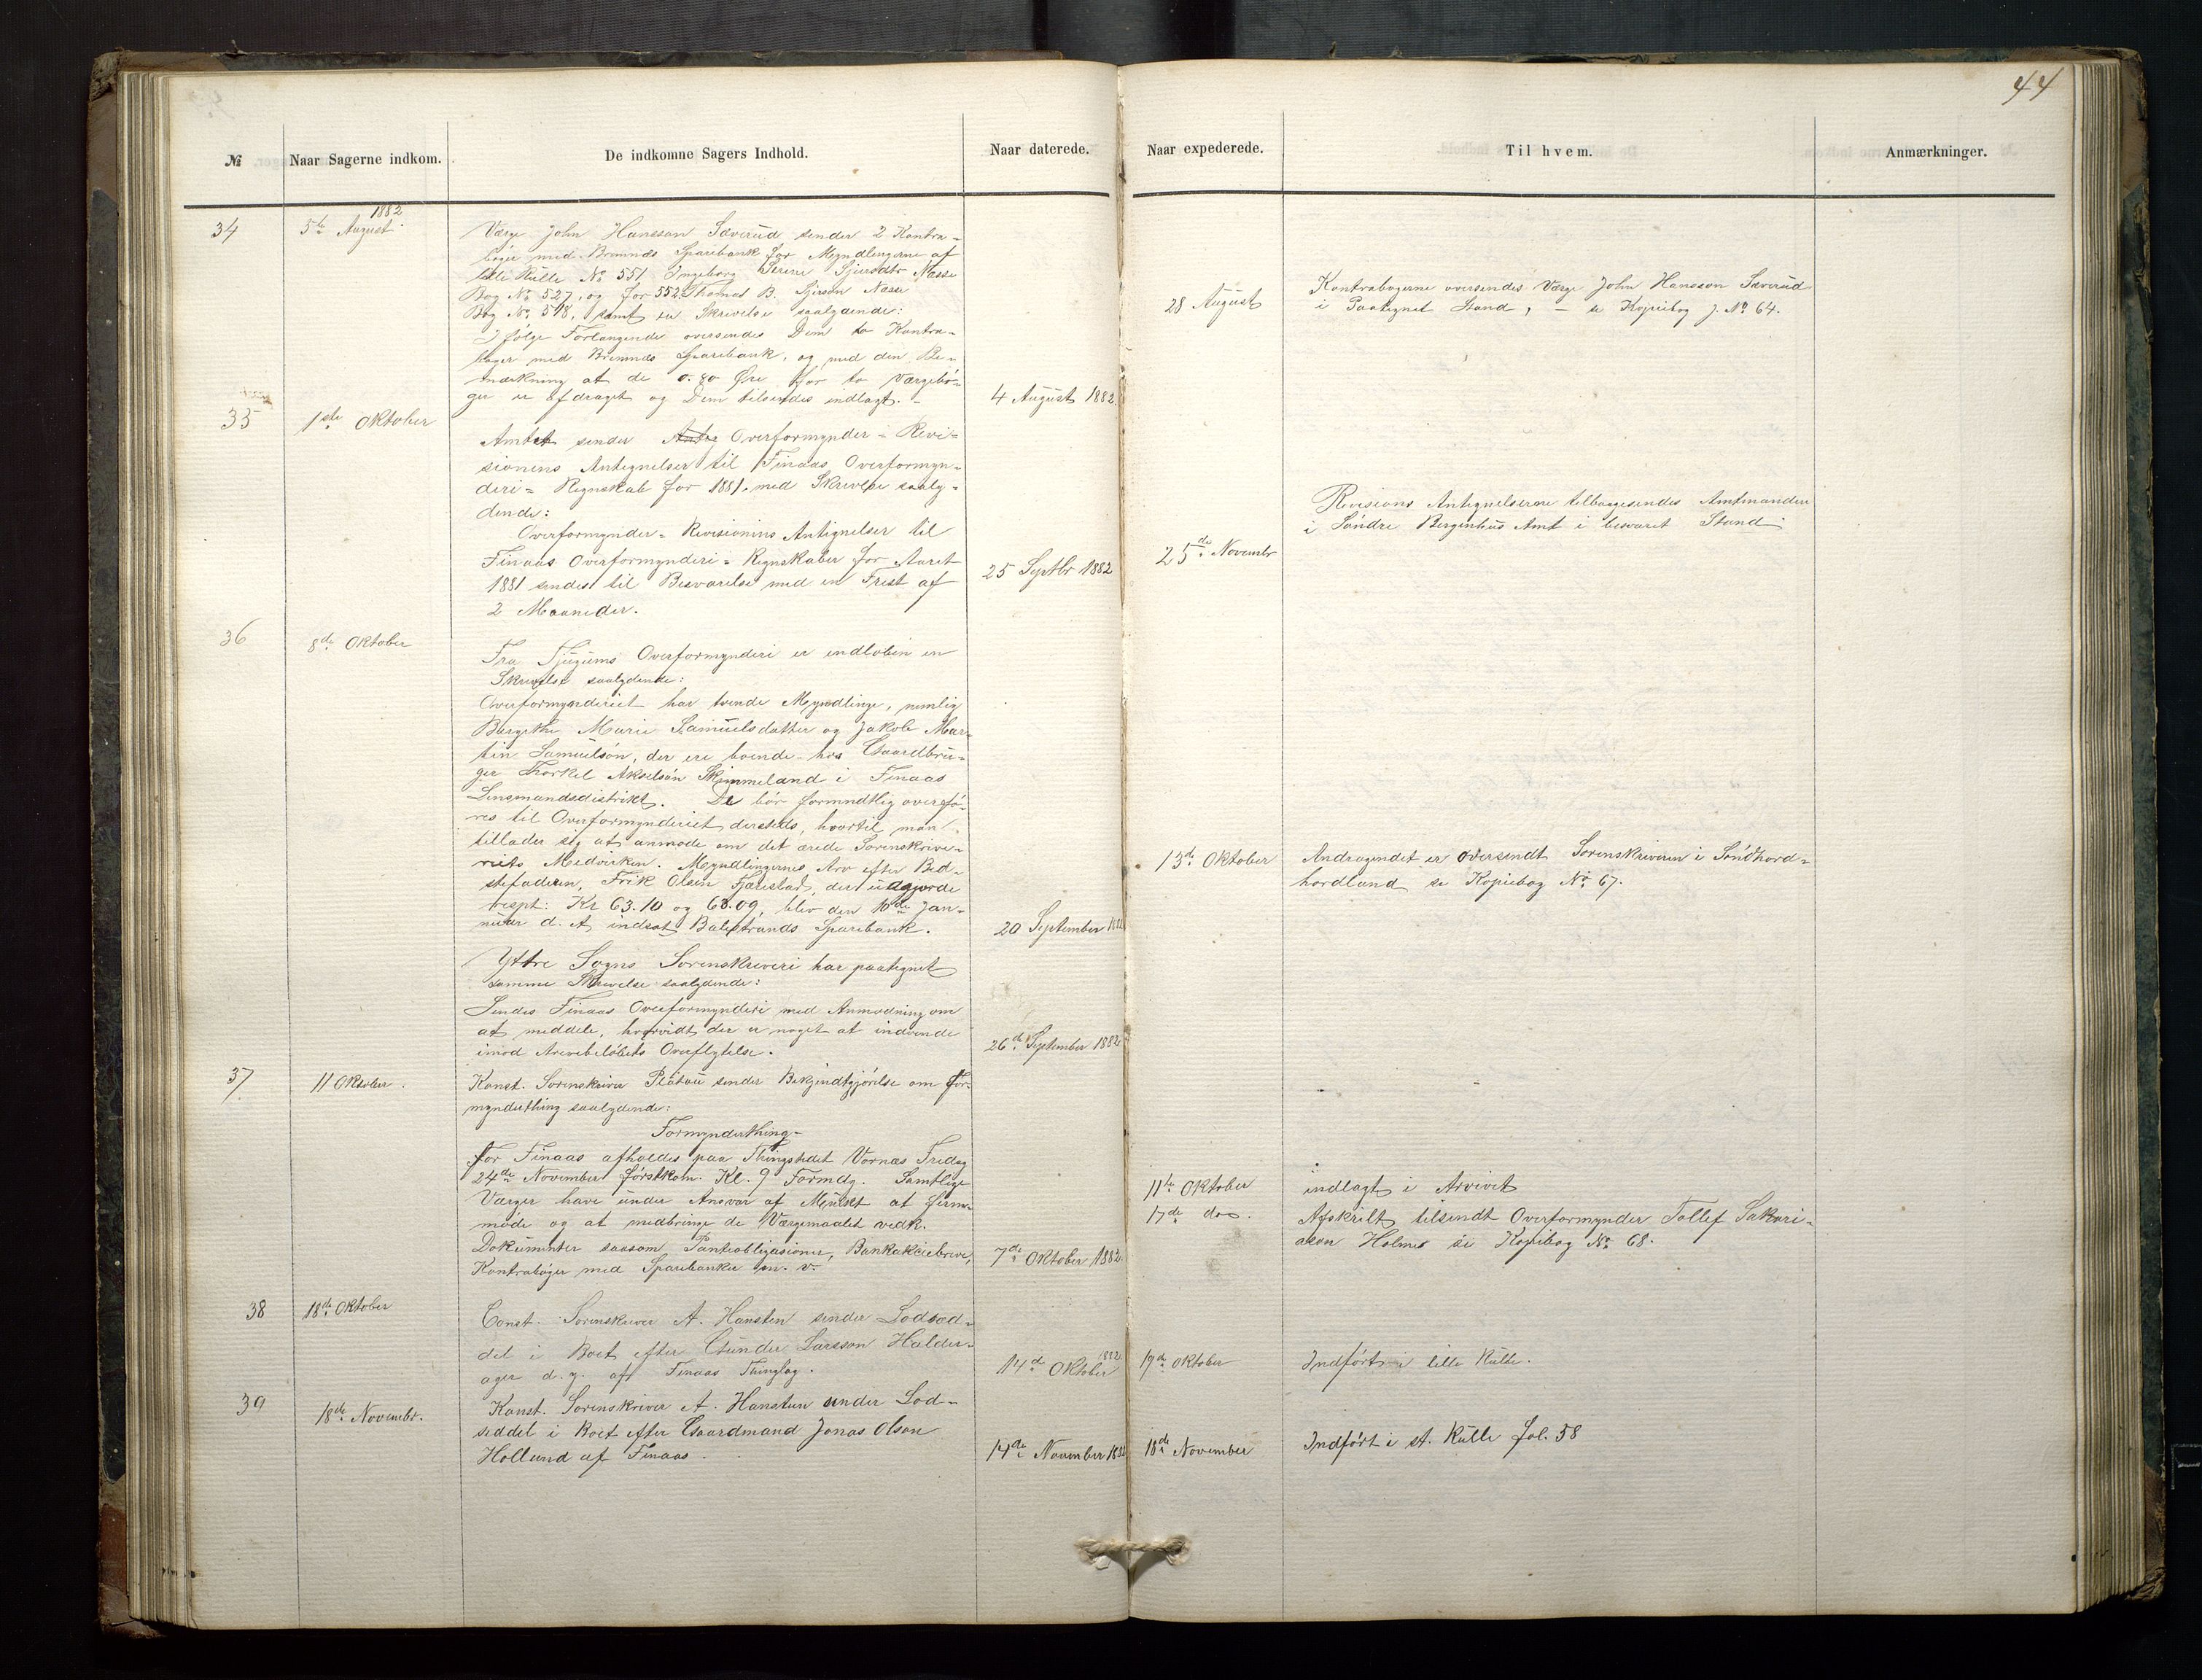 44
№
Naar Sagerne indkom.
De indkomne Sagers Indhold.
Naar daterede.
Naar expederede.
Til hvem.
Anmærkninger.
34
1882
5te August
Værge John Hansson Sæverud sender 2 Kontra-
bøger med Bremnæs Sparebank for Myndlingerne af
lille Rulle No 551 Ingeborg Serine Sjursdtr Næsse
Bog No 527, og for 552 Thomas B. Sjurson Næsse
Bog No 518, samt en Skrivelse saalydende:
I følge Forlangende oversendes Dem to Kontra-
bøger med Bremnæs Sparebank, og med den Be-
mærkning at de 0.80 Øre for to Værgebø-
ger er afdraget og Dem tilsendes indlagt. -
4 August 1882.
28 August
Kontrabogerne oversendes Værge John Hansson Sæverud
i Paategnet Stand, - se Kopiebog J. No 64.
35
1ste Oktober
Amtet sender Overformynder-Revi-
sionens Antegnelser til Finaas Overformyn-
deri-Regnskab for 1881, med Skrivelse saaly-
dende:
Overformynder-Revisionens Antegnelser til
Finaas Overformynderi-Regnskaber for Aaret
1881 sendes til Besvarelse med en Frist af
2 Maaneder.
25 Septbr 1882
25de Novembr
Revisions Antegnelserne tilbagesendes Amtmanden
i Søndre Bergenhus Amt i besvaret Stand
36
8de Oktober
Fra Tjugums Overformynderi er indløben en
Skrivelse saalydende:
Overformynderiet har tvende Myndlinge, nemlig
Bergithe Marie Samuelsdatter og Jakob Mar-
tin Samuelsøn, der ere boende hos Gaardbru-
ger Thorkel Akselsøn Skimmeland i Finaas
Lensmandsdistrikt. De bør formndtlig overfø-
res til Overformynderiet dersteds, hvortil man
tillader sig at anmode om det ærede Sorenskrive-
riets Medvirken. Myndlingernes Arv efter Bed-
stefaderen, Erik Olsen Fjærestad, der udgjorde
respt: Kr 63.10 og 68.09, blev den 10de Jan-
nuar d. A. indsat Balestrands Sparebank.
20 September 1882
13de Oktober
Andragendet er oversendt Sorenskriveren i Søndhord-
hordland se Kopiebog No 67.
Yttre Sogns Sorenskriveri har paategnet
samme Skrivelse saalydende:
Sendes Finaas Overformynderi med Anmodning om
at meddele, hvorvidt der er noget at indvende
imod Arvebeløbets Overflytelse.
26de September 1882
37
11 Oktober.
Konst. Sorenskriver Platou sender Bekjendtgjørelse om For-
mynderthing saalydende:
Formynderthing-
for Finaas afholdes paa Thingstedet Vornæs Fredag
24de November førstkom. Kl. 9 Formdg. Samtlige
Værger have under Ansvar af Mulkt at frem-
møde og at medbringe de Værgemaalet vedk.
Dokumenter saasom Panteobligasioner, Bankakciebreve,
Kontrabøger med Sparebanker m. v.
7de Oktober 1882.
11te Oktober
indlagt i Arvivet
17de do.
Afskrift tilsendt Overformynder Tollef Sakari-
ason Holme se Kopiebog No 68.
38
18de Oktober
Const. Sorenskriver A. Hansten sender Lodsed-
del i Boet efter Gunder Larsson Halder-
ager d.y. af Finaas Thinglag.
14de Oktober 1882
19de Oktober
Indført i lille Rulle.
39
18de Novembr.
Konst. Sorenskriver A. Hansten sender Lod-
seddel i Boet efter Gaardmand Jonas Olson
Hollund af Finaas.
14de November 1882
18de November
Indført i st. Rulle fol. 58